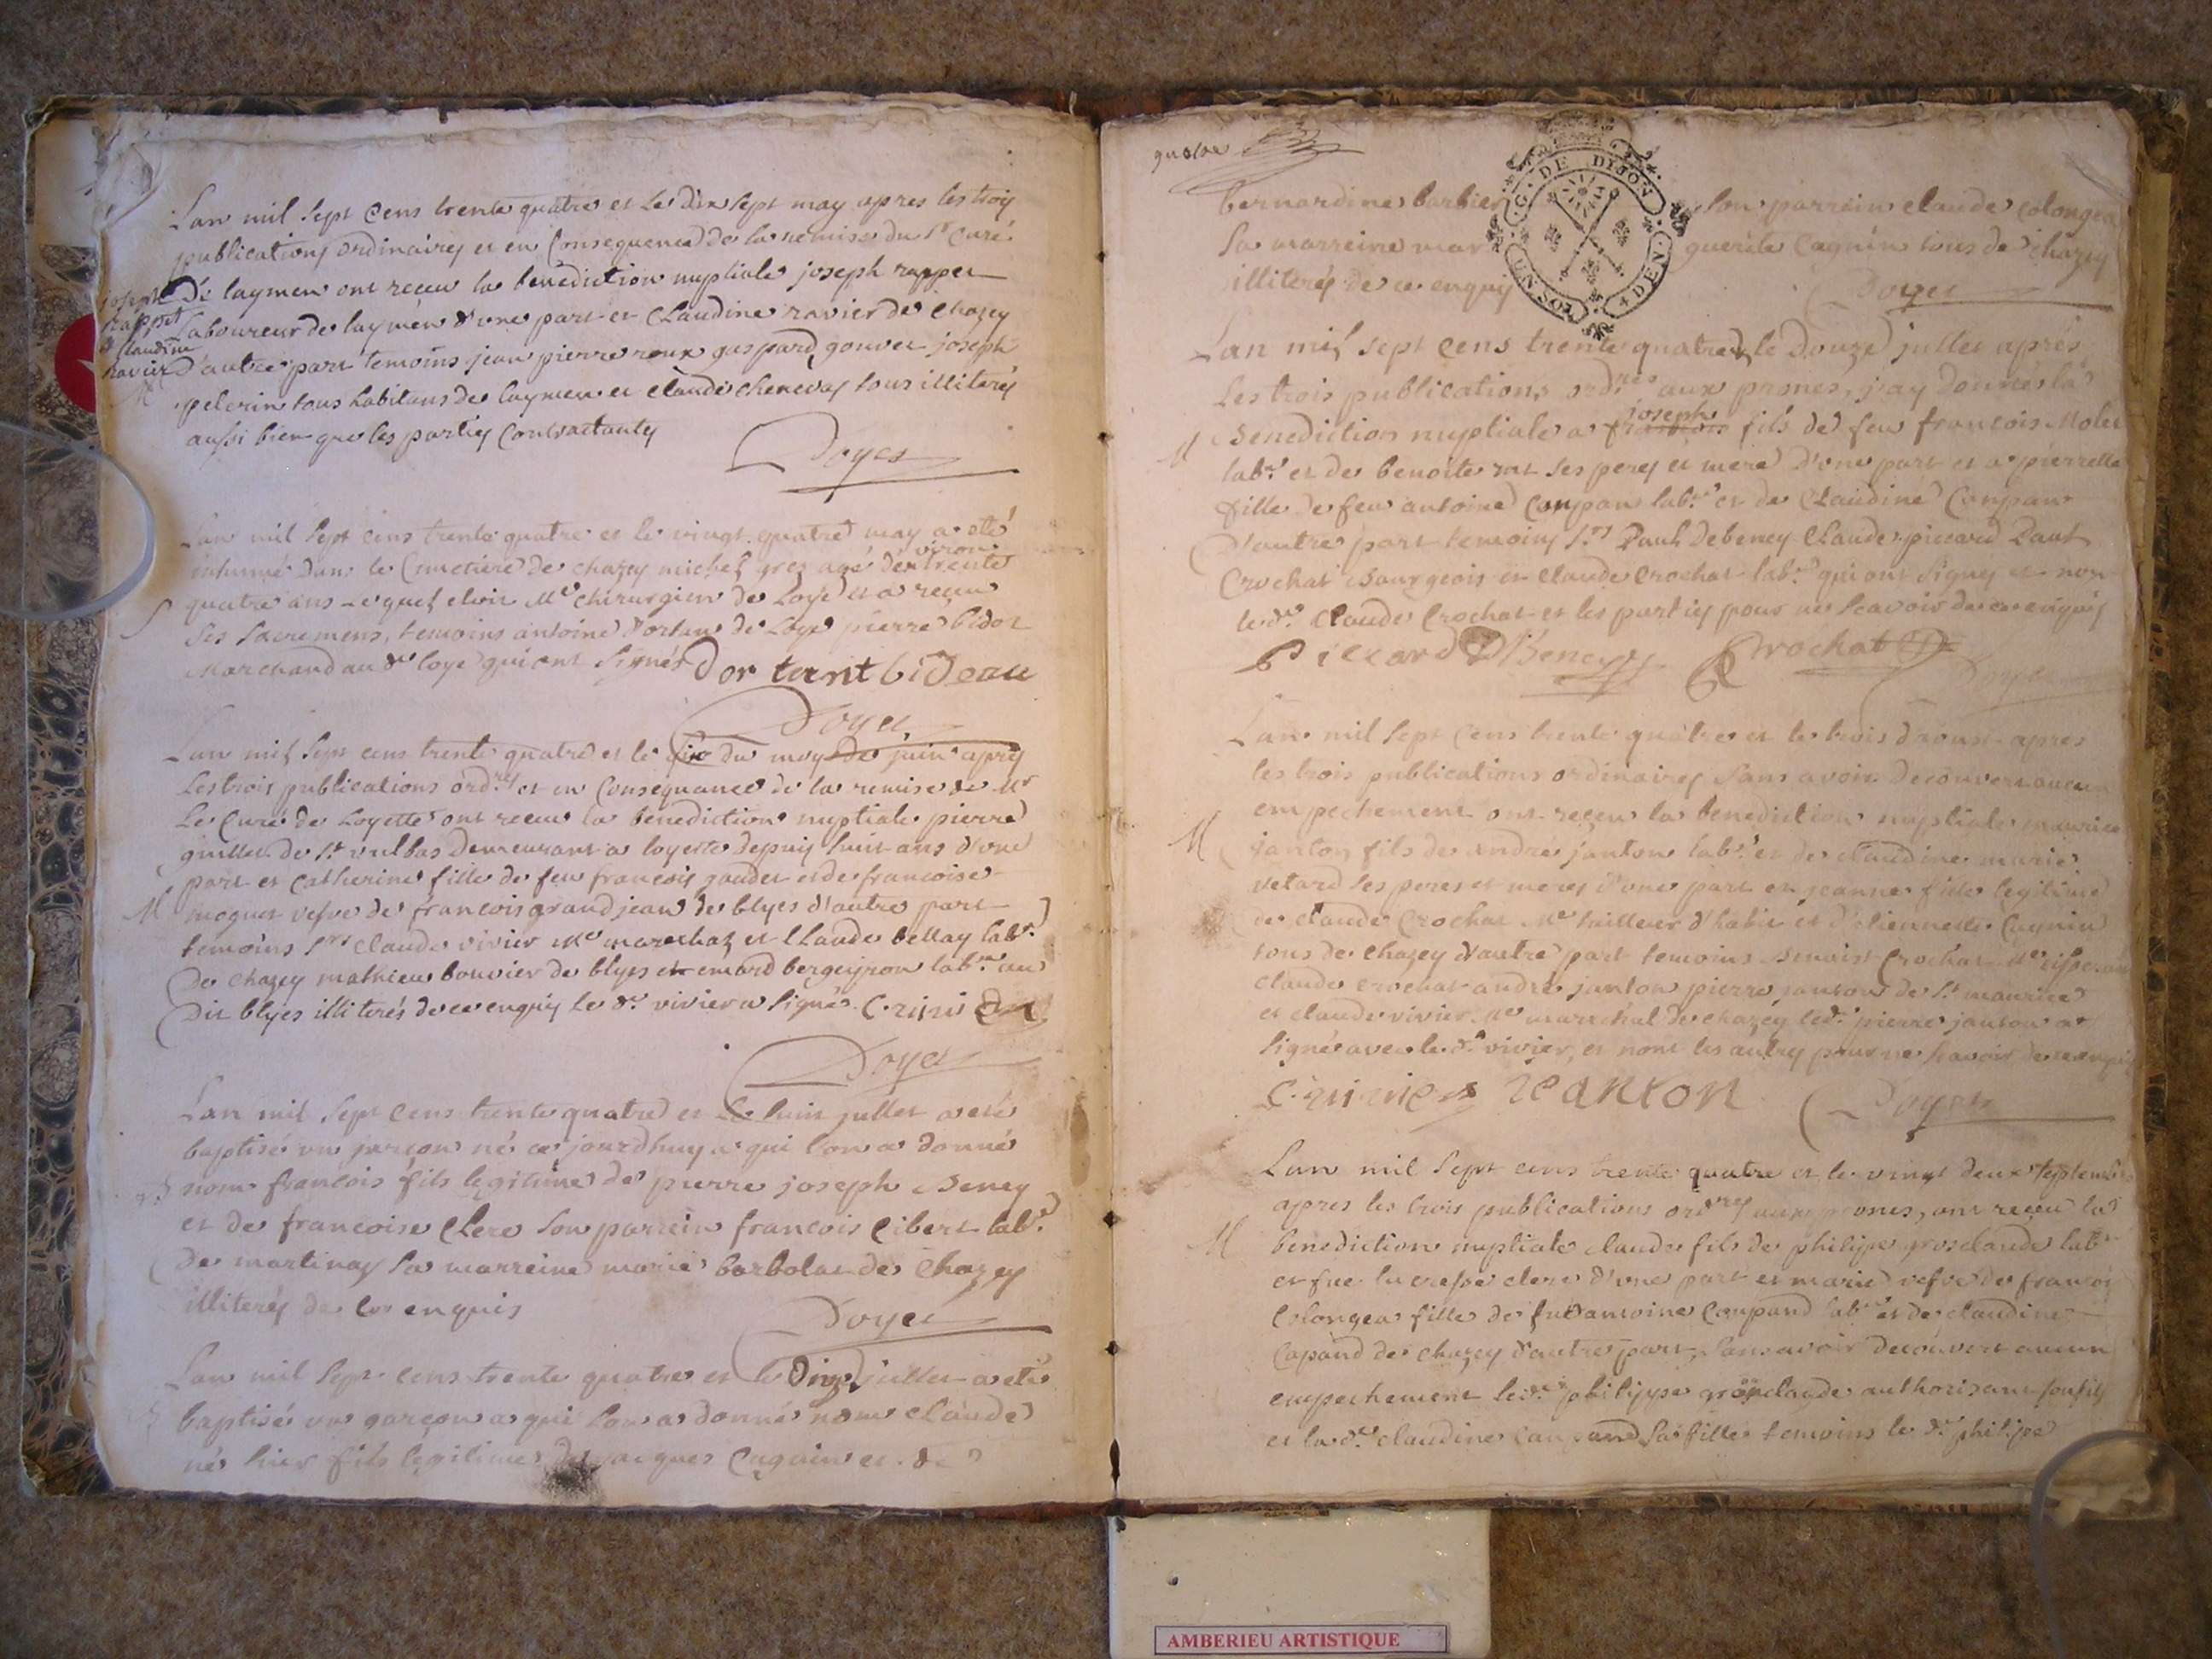 Lan mil sept cens trente quatre et le dix sept may apres les troy
publications ordinaires et en consequence de la remise du Sr Curé
de laymen ont receu la benediction nuptiale joseph rappet
laboureur de laymen d'une part et Claudine ravier de chazey
d'autre part temoins jean pierre roux gaspard gonvet joseph
pelerin tous habitans de laymen et claude chenevas tous illiterés
aussi bien que les parties contractantes
joseph
rappet
et claudine
ravier
M
Doyet
Lan mil sept cens trente quatre et le vingt quatre may a eté
inhumé dans le Cimetiere de chazey michel gres agé denviron trente
quatre ans lequel etoit Me chirurgien de Loye et a receu
S
ses sacremens, temoins antoine dortan de Loye pierre bidot
Marchand au dt loye qui ont signés Dortant bideau
Doyet
Lan mil sept cens trente quatre et le six du moy de juin apres
les trois publications ordres et en consequance de la remise de Mr
Le Curé de Loyette ont receu la benediction nuptiale pierre
guillet de St vulbas demeurant a loyette depuis huit ans d'une
part et catherine fille de feu francois gaudet et de francoise
M
moguet vefve de francois grand jean de blyes d'autre part
temoins Srs claude vivier Me marechal et Claude bellay labr
de chazey mathieu bouvier de blyes et emard bergeyron labr au
dit blyes illiterés de ce enquis le dt vivier a signé C. vivier
Doyet
Lan mil sept cens trente quatre et le huit jullet a eté
baptisé un garçon né ce jourdhuy a qui l'on a donné
B
nom francois fils legitime de pierre joseph Beney
et de francoise Clerc son parrein francois Cibert labr
de martinas sa marreine marie barbolat de Chazey
illiterés de ce enquis
Doyet
Lan mil sept cens trente quatre et le dix jullet a eté
baptisé un garçon a qui l'on a donné nom claude
né hier fils legitime de jacques Cagnin et de
quatre
G. DE DIJON
UN SOL 4 DEN.
bernardine barbier son parrain claude colongea
sa marreine marguerite Cagnin tous de chazey
illiterés de ce enquis
Doyet
Lan mil sept cens trente quatre et le douze jullet aprés
les trois publications ordres aux prones, j'ay donnés la
M
Benediction nuptiale a joseph fils de feu francois Molet
labr et de benoite rat ses pere et mere d'une part et a pierrette
fille de feu antoine Coupan labr et de Claudine Coupan
d'autre part temoins Srs Paul Debeney Claude piccard Paul
Crochat Bourgeois et Claude Crochat labr qui ont signés et non
le dt Claude Crochat et les parties pour ne scavoir de ce enquis
Piccard DBeney PCrochat
Doyet
Lan mil sept cens trente quatre et le trois d'aoust apres
les trois publications ordinaires sans avoir decouvert aucun
empechement ont receu la benediction nuptiale maurice
M
janton fils de andré janton labr et de claudine marie
vetard ses peres et meres d'une part et jeanne fille legitime
de claude Crochat Me tailleur d'habit et d'etiennette Cagnin
tous de chazey d'autre part temoins Benoist Crochat Me tisseran
claude crochat andré janton pierre janton de St maurice
et claude vivier Me marechal de chazey led. pierre janton a
signé avec le dt vivier, et nont les autres pour ne scavoir de ce enquis
C. vivier Jeanton
Doyet
Lan mil sept cens trente quatre et le vingt deux septembre
apres les trois publications ordres aux prones, ont receu la
M
benediction nuptiale claude fils de philippe grosclaude labr
et fue lucresse clerc d'une part et marie vefve de francois
Colongea fille de fue antoine Coupand labr et de claudine
Capand de chazey d'autre part, sans avoir decouvert aucun
empechement led. philippe grosclaude authorisant son fils
et la de claudine Caupand sa fille temoins le dt philipe
AMBERIEU ARTISTIQUE